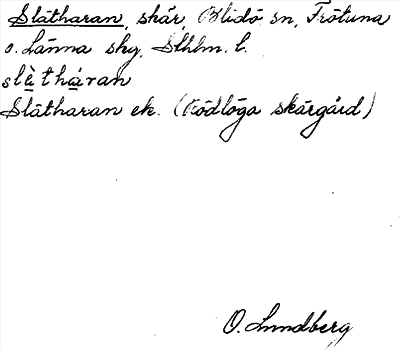 Slätharan, skär, Blidö sn, Frötuna
o. Länna skg, Sthlm. l.
slèthá̱ran
Slätharan ek. (Rödlöga skärgård)
O. Lundberg